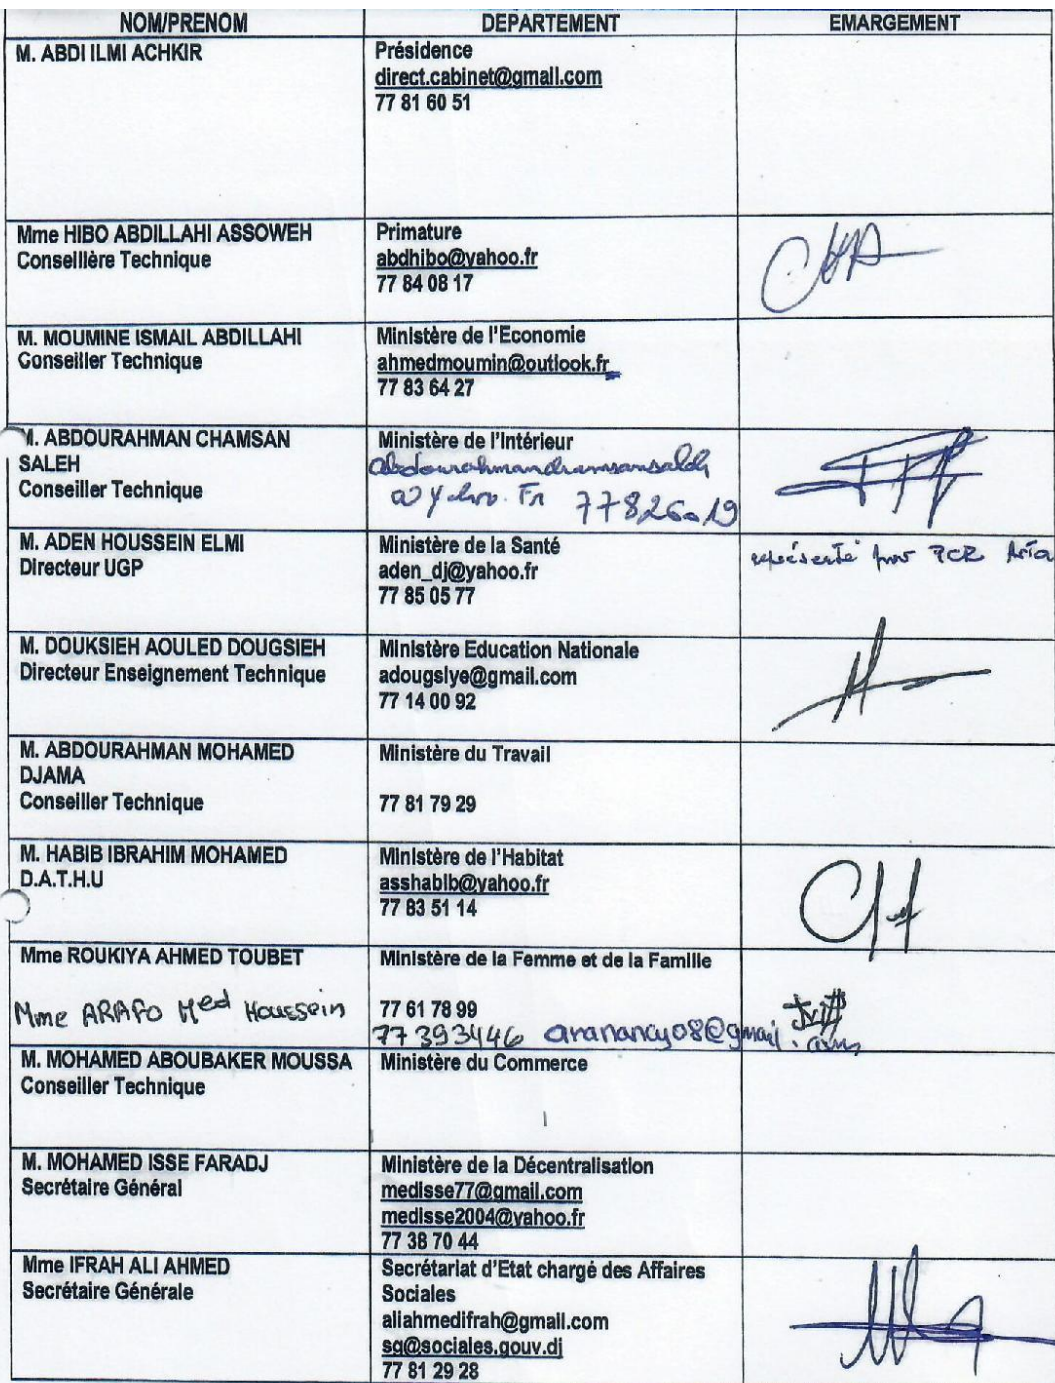 NOM/PRENOM DEPARTEMENT EMARGEMENT
M. ABDI ILMI ACHKIR
Présidence
direct.cabinet@gmail.com
77 81 60 51
Mme HIBO ABDILLAHI ASSOWEH
Conseillère Technique
Primature
abdhibo@yahoo.fr
77 84 08 17
M. MOUMINE ISMAIL ABDILLAHI
Conseiller Technique
Ministère de l'Economie
ahmedmoumin@outlook.fr
77 83 64 27
M. ABDOURAHMAN CHAMSAN
SALEH
Conseiller Technique
Ministère de l'Intérieur
77826019
M. ADEN HOUSSEIN ELMI
Directeur UGP
Ministère de la Santé
aden_dj@yahoo.fr
77 85 05 77
représenté par PCR
M. DOUKSIEH AOULED DOUGSIEH
Directeur Enseignement Technique
Ministère Education Nationale
adougsiye@gmail.com
77 14 00 92
M. ABDOURAHMAN MOHAMED
DJAMA
Conseiller Technique
Ministère du Travail
77 81 79 29
M. HABIB IBRAHIM MOHAMED
D.A.T.H.U
Ministère de l'Habitat
asshabib@yahoo.fr
77 83 51 14
Mme ROUKIYA AHMED TOUBET
Mme ARAFO Med Houssein
Ministère de la Femme et de la Famille
77 61 78 99
77393446 aranancy08@gmail.com
M. MOHAMED ABOUBAKER MOUSSA
Conseiller Technique
Ministère du Commerce
M. MOHAMED ISSE FARADJ
Secrétaire Général
Ministère de la Décentralisation
medisse77@gmail.com
medisse2004@yahoo.fr
77 38 70 44
Mme IFRAH ALI AHMED
Secrétaire Générale
Secrétariat d'Etat chargé des Affaires
Sociales
aliahmedifrah@gmail.com
sg@sociales.gouv.dj
77 81 29 28